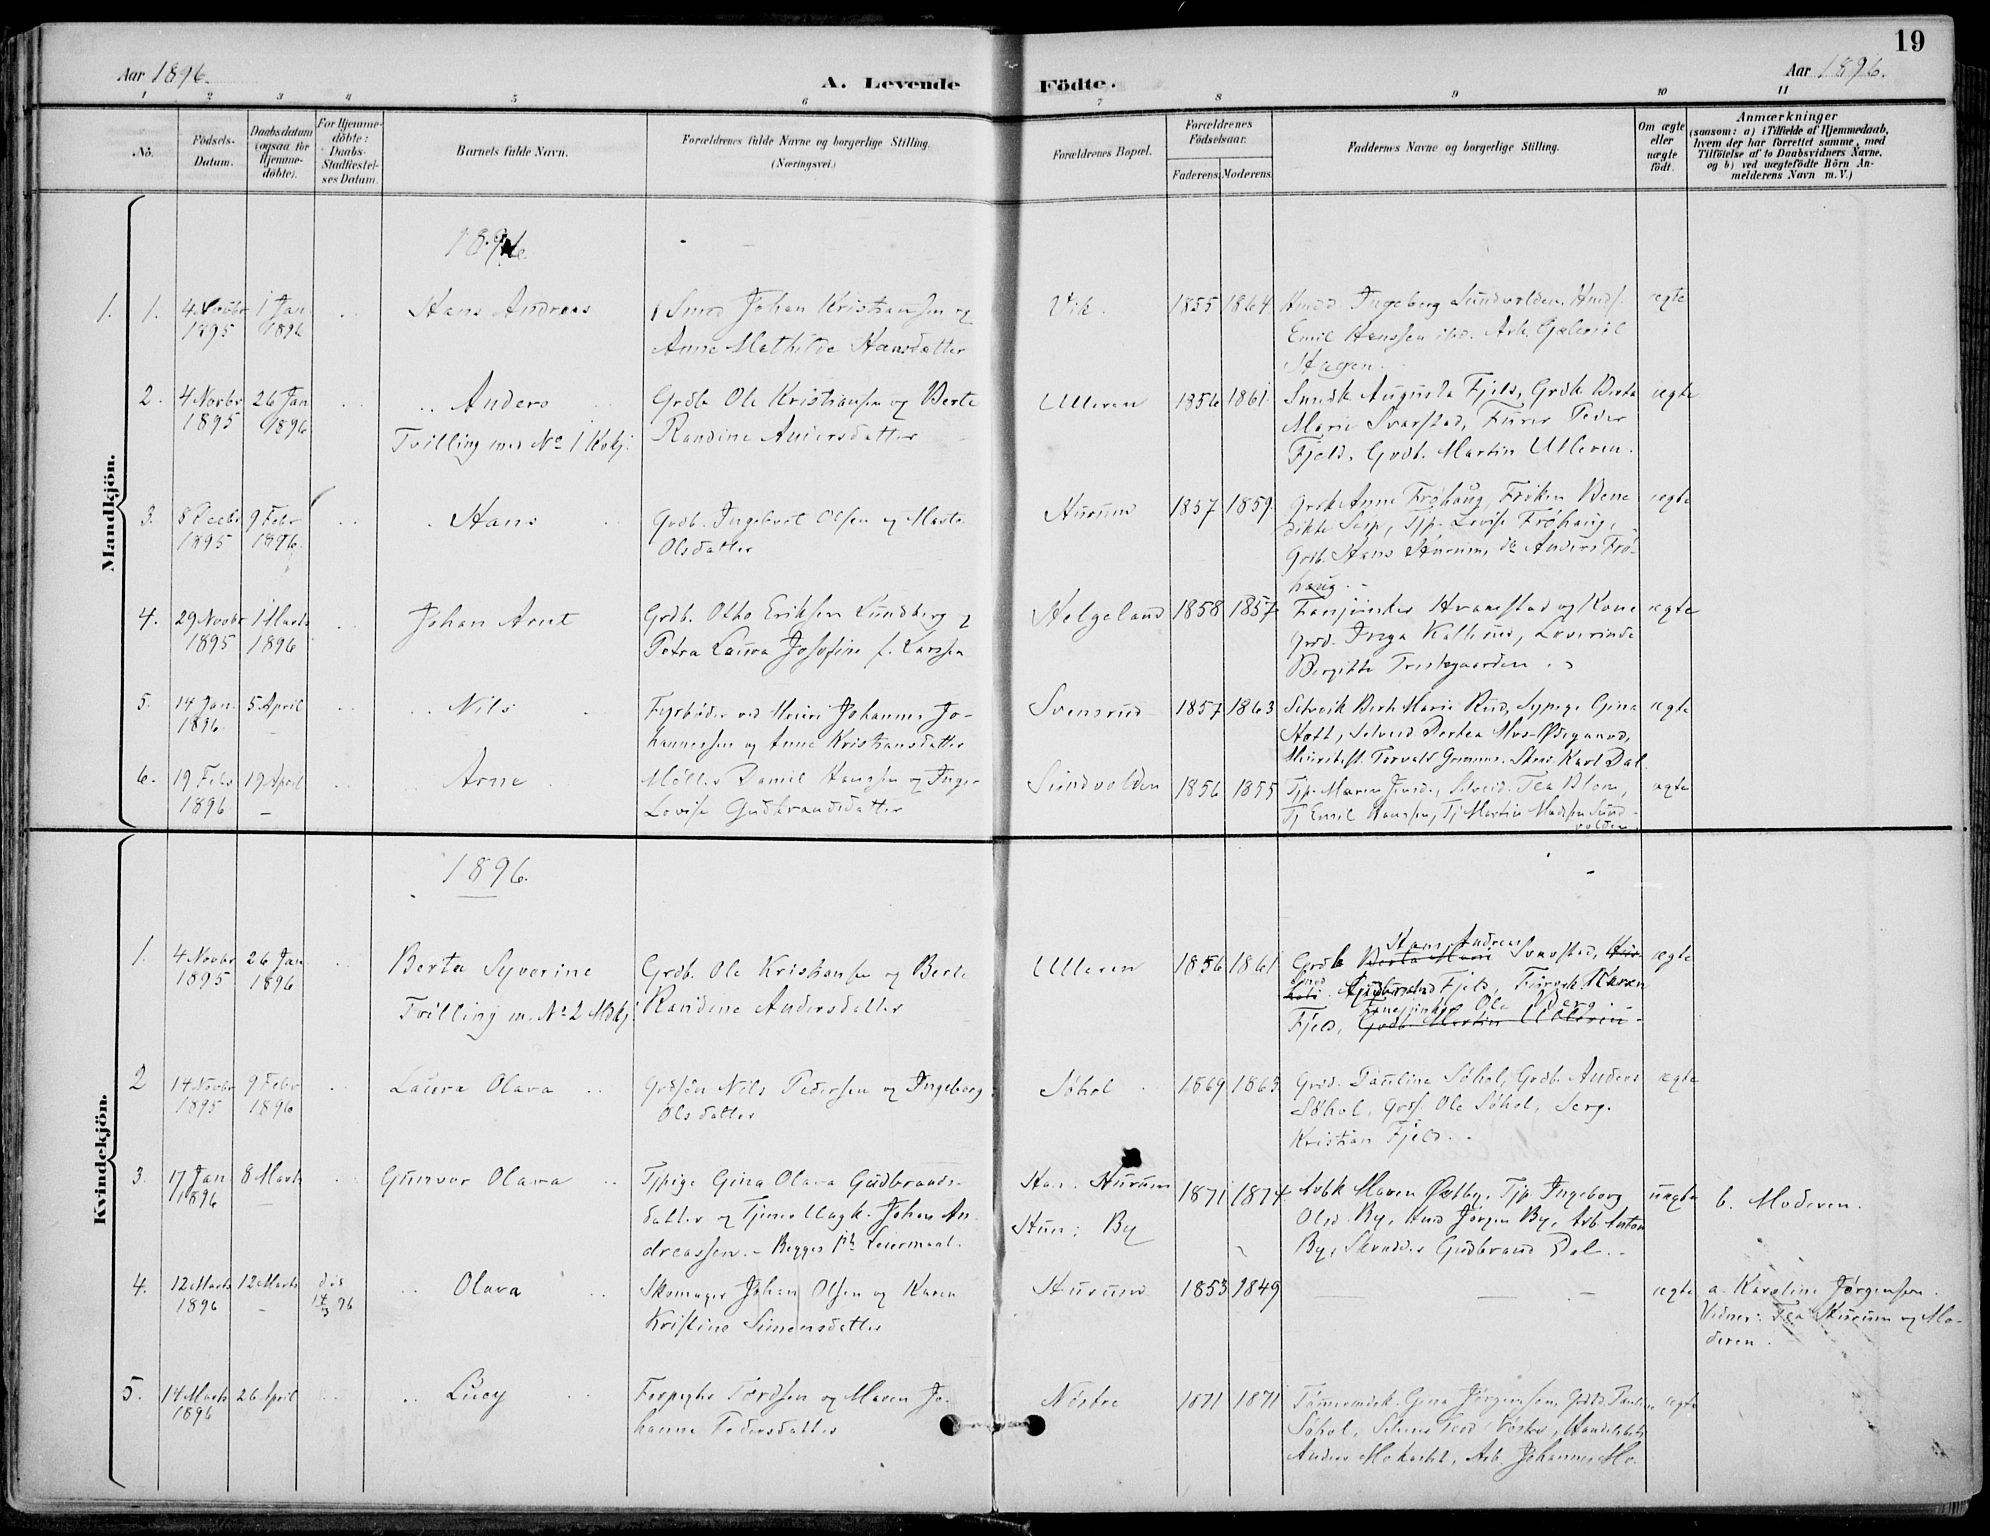 19
Aar 1896.
A. Levende Födte.
Aar 1896.
1 2 3 4 5 6 7 8 9 10 11
No.
Födsels-
Datum.
Daabsdatum
(ogsaa for
Hjemme-
döbte).
For Hjemme-
döbte:
Daabs-
Stadfæstel-
ses Datum.
Barnets fulde Navn.
Forældrenes fulde Navne og borgerlige Stilling.
(Næringsvei.)
Forældrenes Bopæl.
Forældrenes
Födselsaar.
Faderens. Moderens.
Faddernes Navne og borgerlige Stilling.
Om ægte
eller
uægte
födt.
Anmærkninger
(saasom: a) i Tilfælde af Hjemmedaab,
hvem der har forrettet samme, med
Tilföielse af to Daabsvidners Navne,
og b) ved uægtefödte Börn An-
melderens Navn m. V.)
Mandkjön.
1896
1. 1.
4 Novbr
1895
1 Jan
1896
Hans Andreas
Smed Johan Kristiansen og
Anne Mathilde Hansdatter
Vik.
1855 1864
Ingeborg Sundvolden,
Emil Hanssen ibid. Arb. Gabriel
Hagen.
ægte
2.
4 Novbr
1895
26 Jan
1896
Anders
Tvilling med No 1 Kvkj.
Grdb. Ole Kristiansen og Berte
Randine Andersdatter
Ulleren
1856 1861
Smedk Augusta Fjeld, Grdk Berta
Marie Svarstad, Furer Peder
Fjeld, Grdb. Martin Ulleren.
ægte
3.
8 Decbr
1895
9 Febr
1896.
Hans
Grdb. Ingebret Olsen og Marte
Olsdatter
Hurum
1857 1859
Grdk Anne Frøhaug, Frøken Bene
dikte Lovise Frøhaug,
Grdb. Hans Hurum, do Anders Frø-
haug.
ægte
4.
29 Novbr
1895
1 Marts
1896
Johan Arnt
Grdb. Otto Eriksen Lundberg og
Petra Laura Josefine f. Larsen
Helgeland
1858 1857
Fanejunker Hvamstad og Kone
Grdd. Inga Kallerud, Lovrinde
Bergitte Trøstegaarden.
ægte
5.
14 Jan.
1896.
5 April
Nils
Fyrbøder ved Meieri Johannes Jo-
hannessen og Anne Kristiansdatter
Svensrud
1857 1863
Berte Marie Rud, Sypige Gina
Hott, Dortea Mos-Ødegaard,
Torvald Karl Dal
ægte
6.
19 Febr
1896
19 April
Arne
Møller Daniel Hansen og Inger
Lovise Gudbrandsdatter
Sundvolden
1856 1855
Tjp. Maren Tea Blom,
Tj Emil Hanssen, Tj Martin Madsen Sund-
volden.
ægte
Kvindekjön.
1896.
1.
4 Novbr
1895
26 Jan
1896
Berta Syverine
Tvilling m. No 2 Mdkj
Grdb. Ole Kristiansen og Berte
Randine Andersdatter
Ulleren
1856 1861
Hans Andreas
Grdb Berta Marie Svarstad,
Fjeld, Karen
Fanejunker Ole Berg.
Fjeld, Grdb. Martin Ulleren.
ægte
2
14 Novbr
1895
9 Febr
1896
Laura Olava
Grdsøn Nils Pedersen og Ingeborg
Olsdatter
Søhol
1869 1865
Grdd. Pauline Søhol, Grdb. Anders
Søhol, Grds. Ole Søhol, Serg.
Kristian Fjeld.
ægte
3.
17 Jan
1896
8 Marts
Gunvor Olava
Tjpige Gina Olava Gudbrands-
datter og Tjener Johan An-
dreassen. – Begges 1ste Leiermaal.
Han: Hurum
Hun: By
1871 1874
Arbk Maren Østby, Tjp. Ingeborg
Olsd. By, Jørgen By, Arb Anton
By, Skrædder Gudbrand Dal.
uægte
b. Moderen.
4.
12 Marts
1896
12 Marts
død
14/3 96
Olava
Skomager Johan Olsen og Karen
Kristine Simensdatter
Hurum
1853 1849
ægte
a. Karoline Jørgensen.
Vidner: Tea Hurum og Mo-
deren.
5.
14 Marts
1896
26 April
Lucy
Tordsen og Maren Jo-
hanne Pedersdatter
Nøstre
1871 1871
Tømermk. Gina Jørgensen, Grdd. Pauline
Søhol,
Anders Arb. Johannes Mo.
ægte